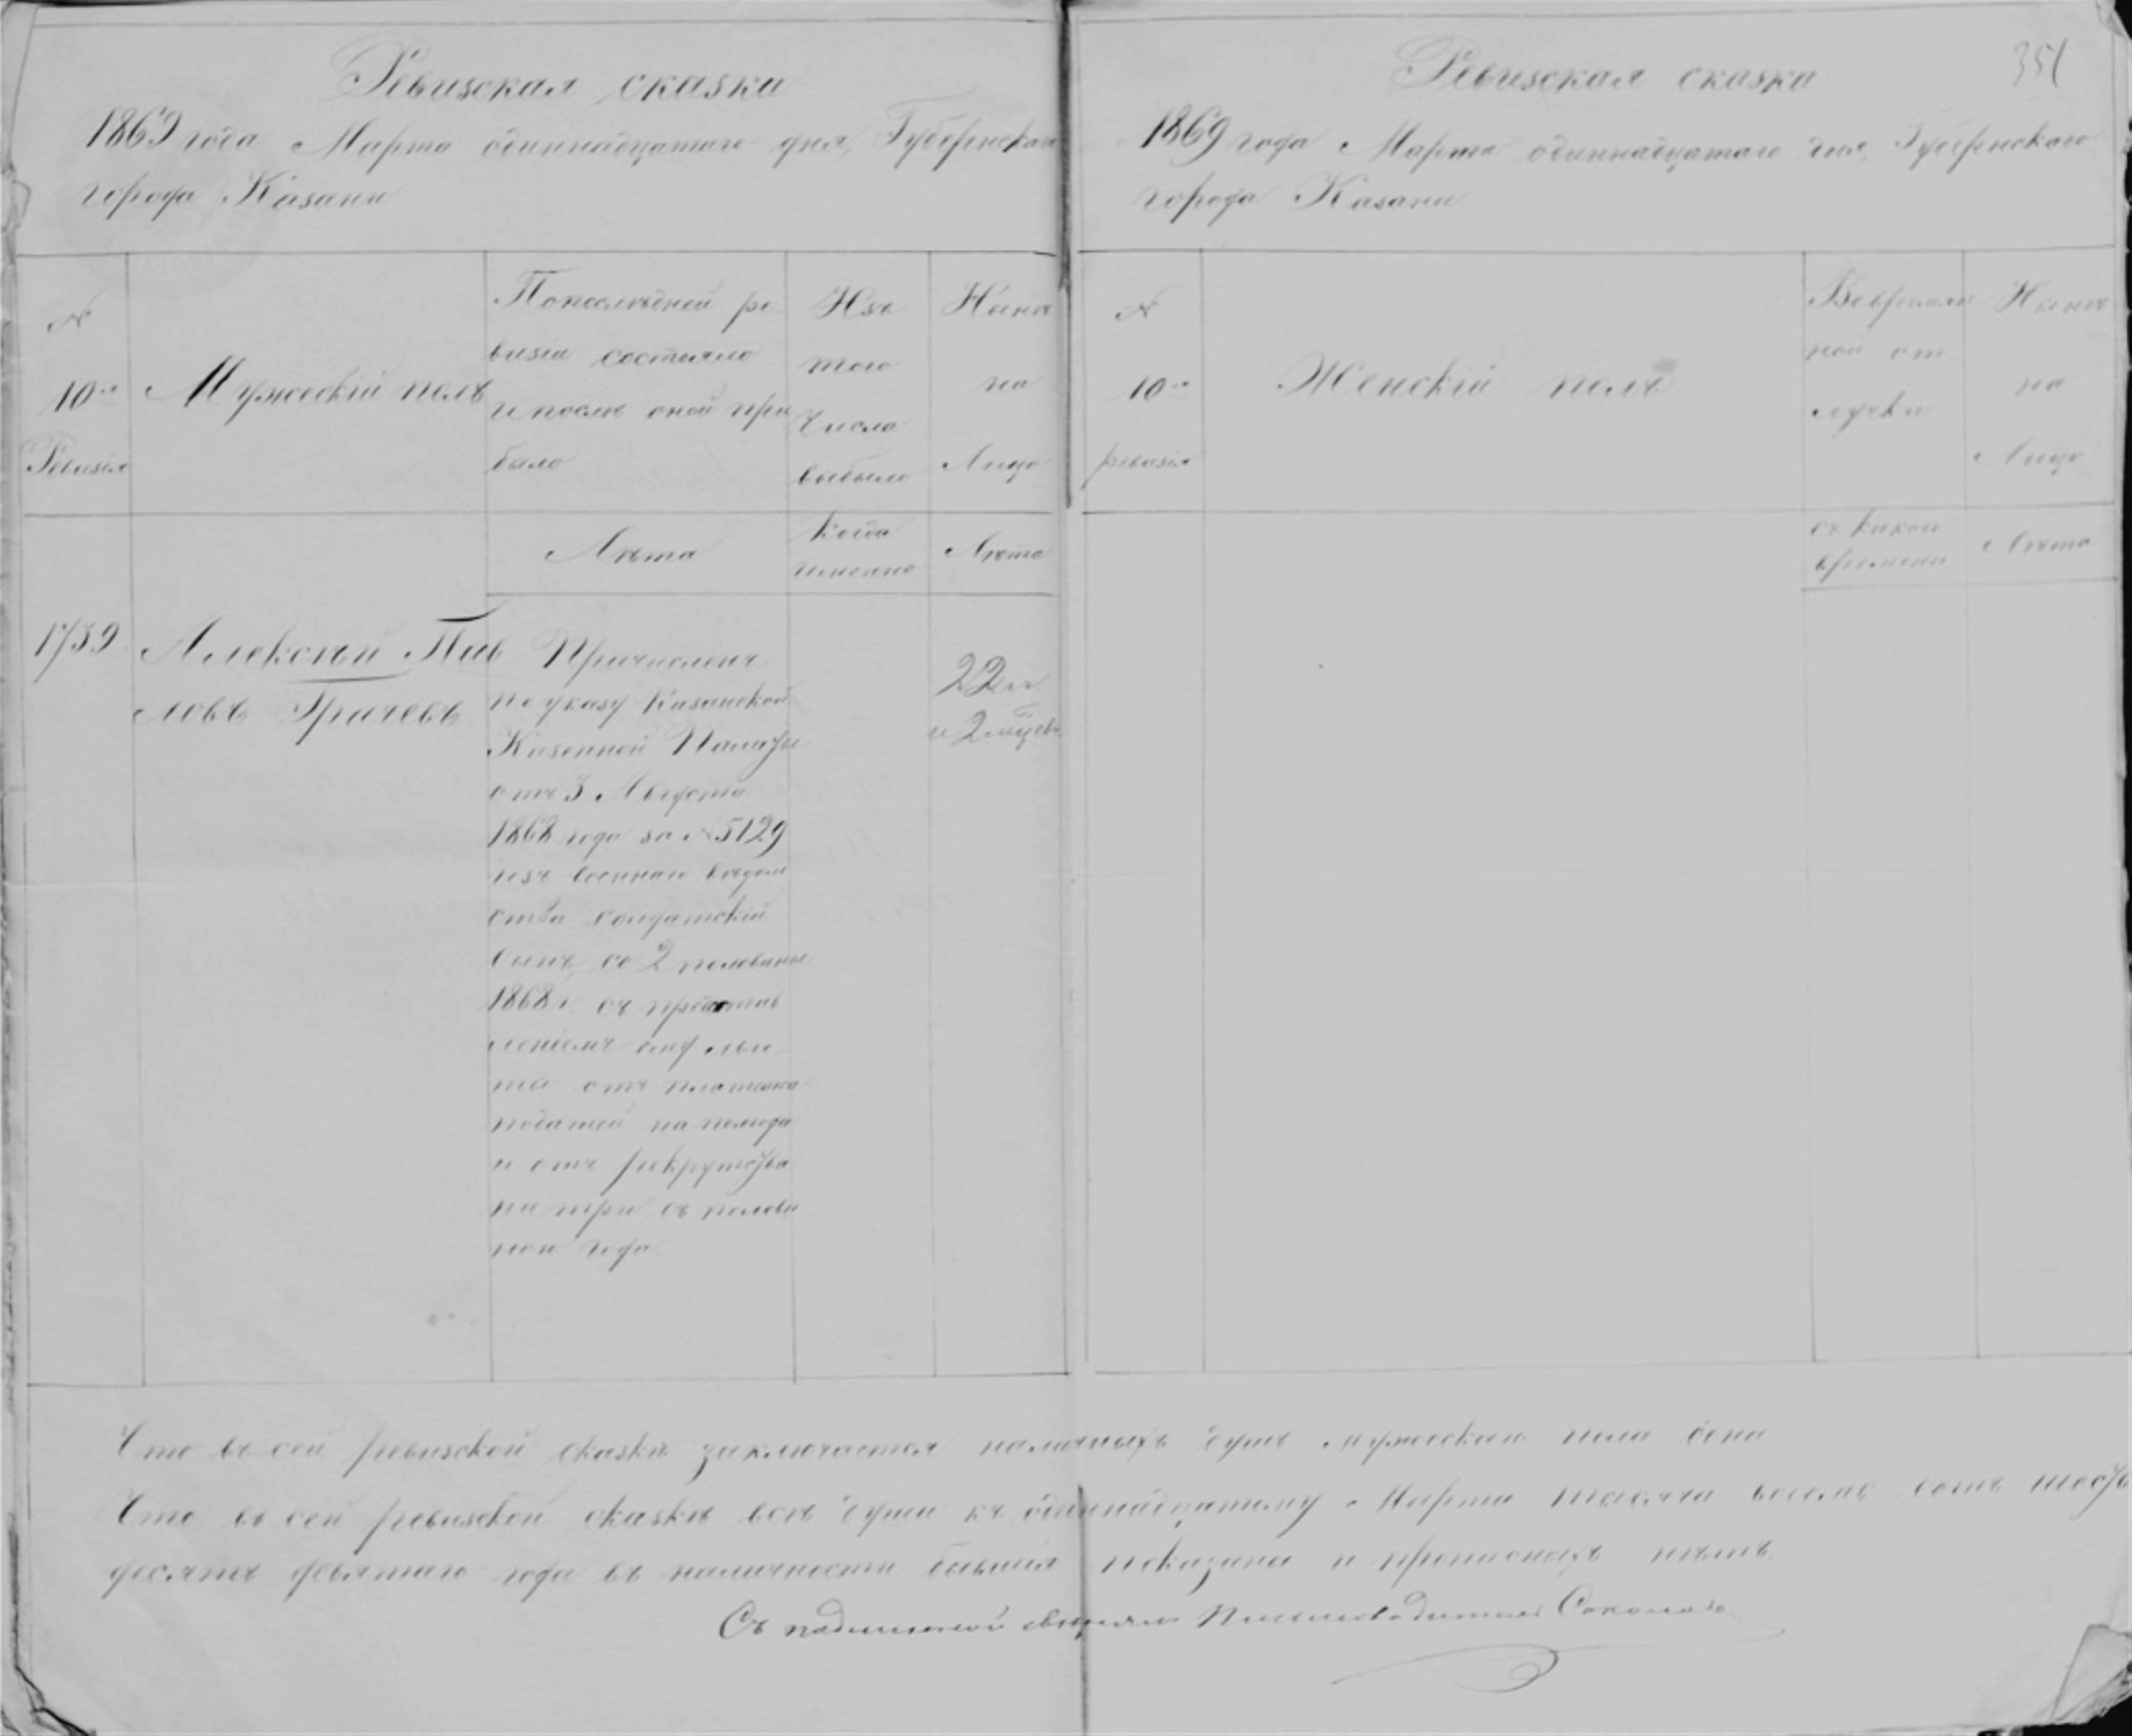 351
Ревизская сказка
1869 года Марта одиннадцатаго дня, Губернскаго
города Казани
№
10я
Ревизія
Мужескій полъ
По последней ре
визіи состояло
и после оной при
было
Лета
Изъ
того
числа
выбыло
Когда
именно
Ныне
на
Лицо
Лета
1739
Алексей Пав
ловъ Грачевъ
Причисленъ
по указу Казанской
Казенной Палаты
отъ 3 Августа
1868 года за №5129
изъ военнаго ведом
ства солдатскій
сынъ, со 2 половины
1868 г. съ предостав
леніемъ ему льго
ты отъ платежа
податей на полгода
и отъ рекрутства
на три съ полови
ною года.
22 л.
и 2 мцев
Ревизская сказка
1869 года Марта одиннадцатаго дня, Губернскаго
города Казани
№
10я
ревизія
Женскій полъ
Во времян
ной от
лучки
съ какого
времени
Ныне
на
Лицо
Лета
Что въ сей ревизской сказкѣ заключается наличныхъ душъ мужескаго пола одна
Что въ сей ревизской сказкѣ всѣ души къ одиннадцатому Марта тысяча восемь сотъ шесть
десятъ девятаго года въ наличности бывшія показаны и прописныхъ нѣтъ.
Съ подлинной сверялъ Письмоводитель Соколовъ